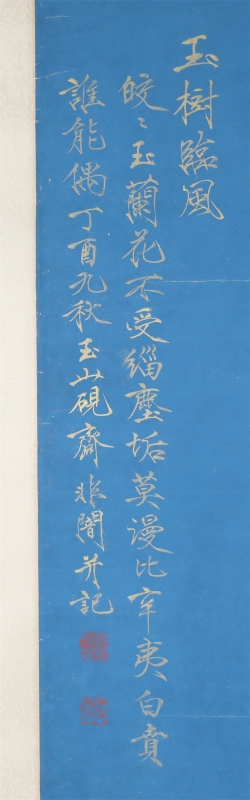 玉樹臨風
皎〻玉蘭花不受緇塵垢莫漫比辛夷白賁
誰能偶丁酉九秋玉山硯齋非闇并記